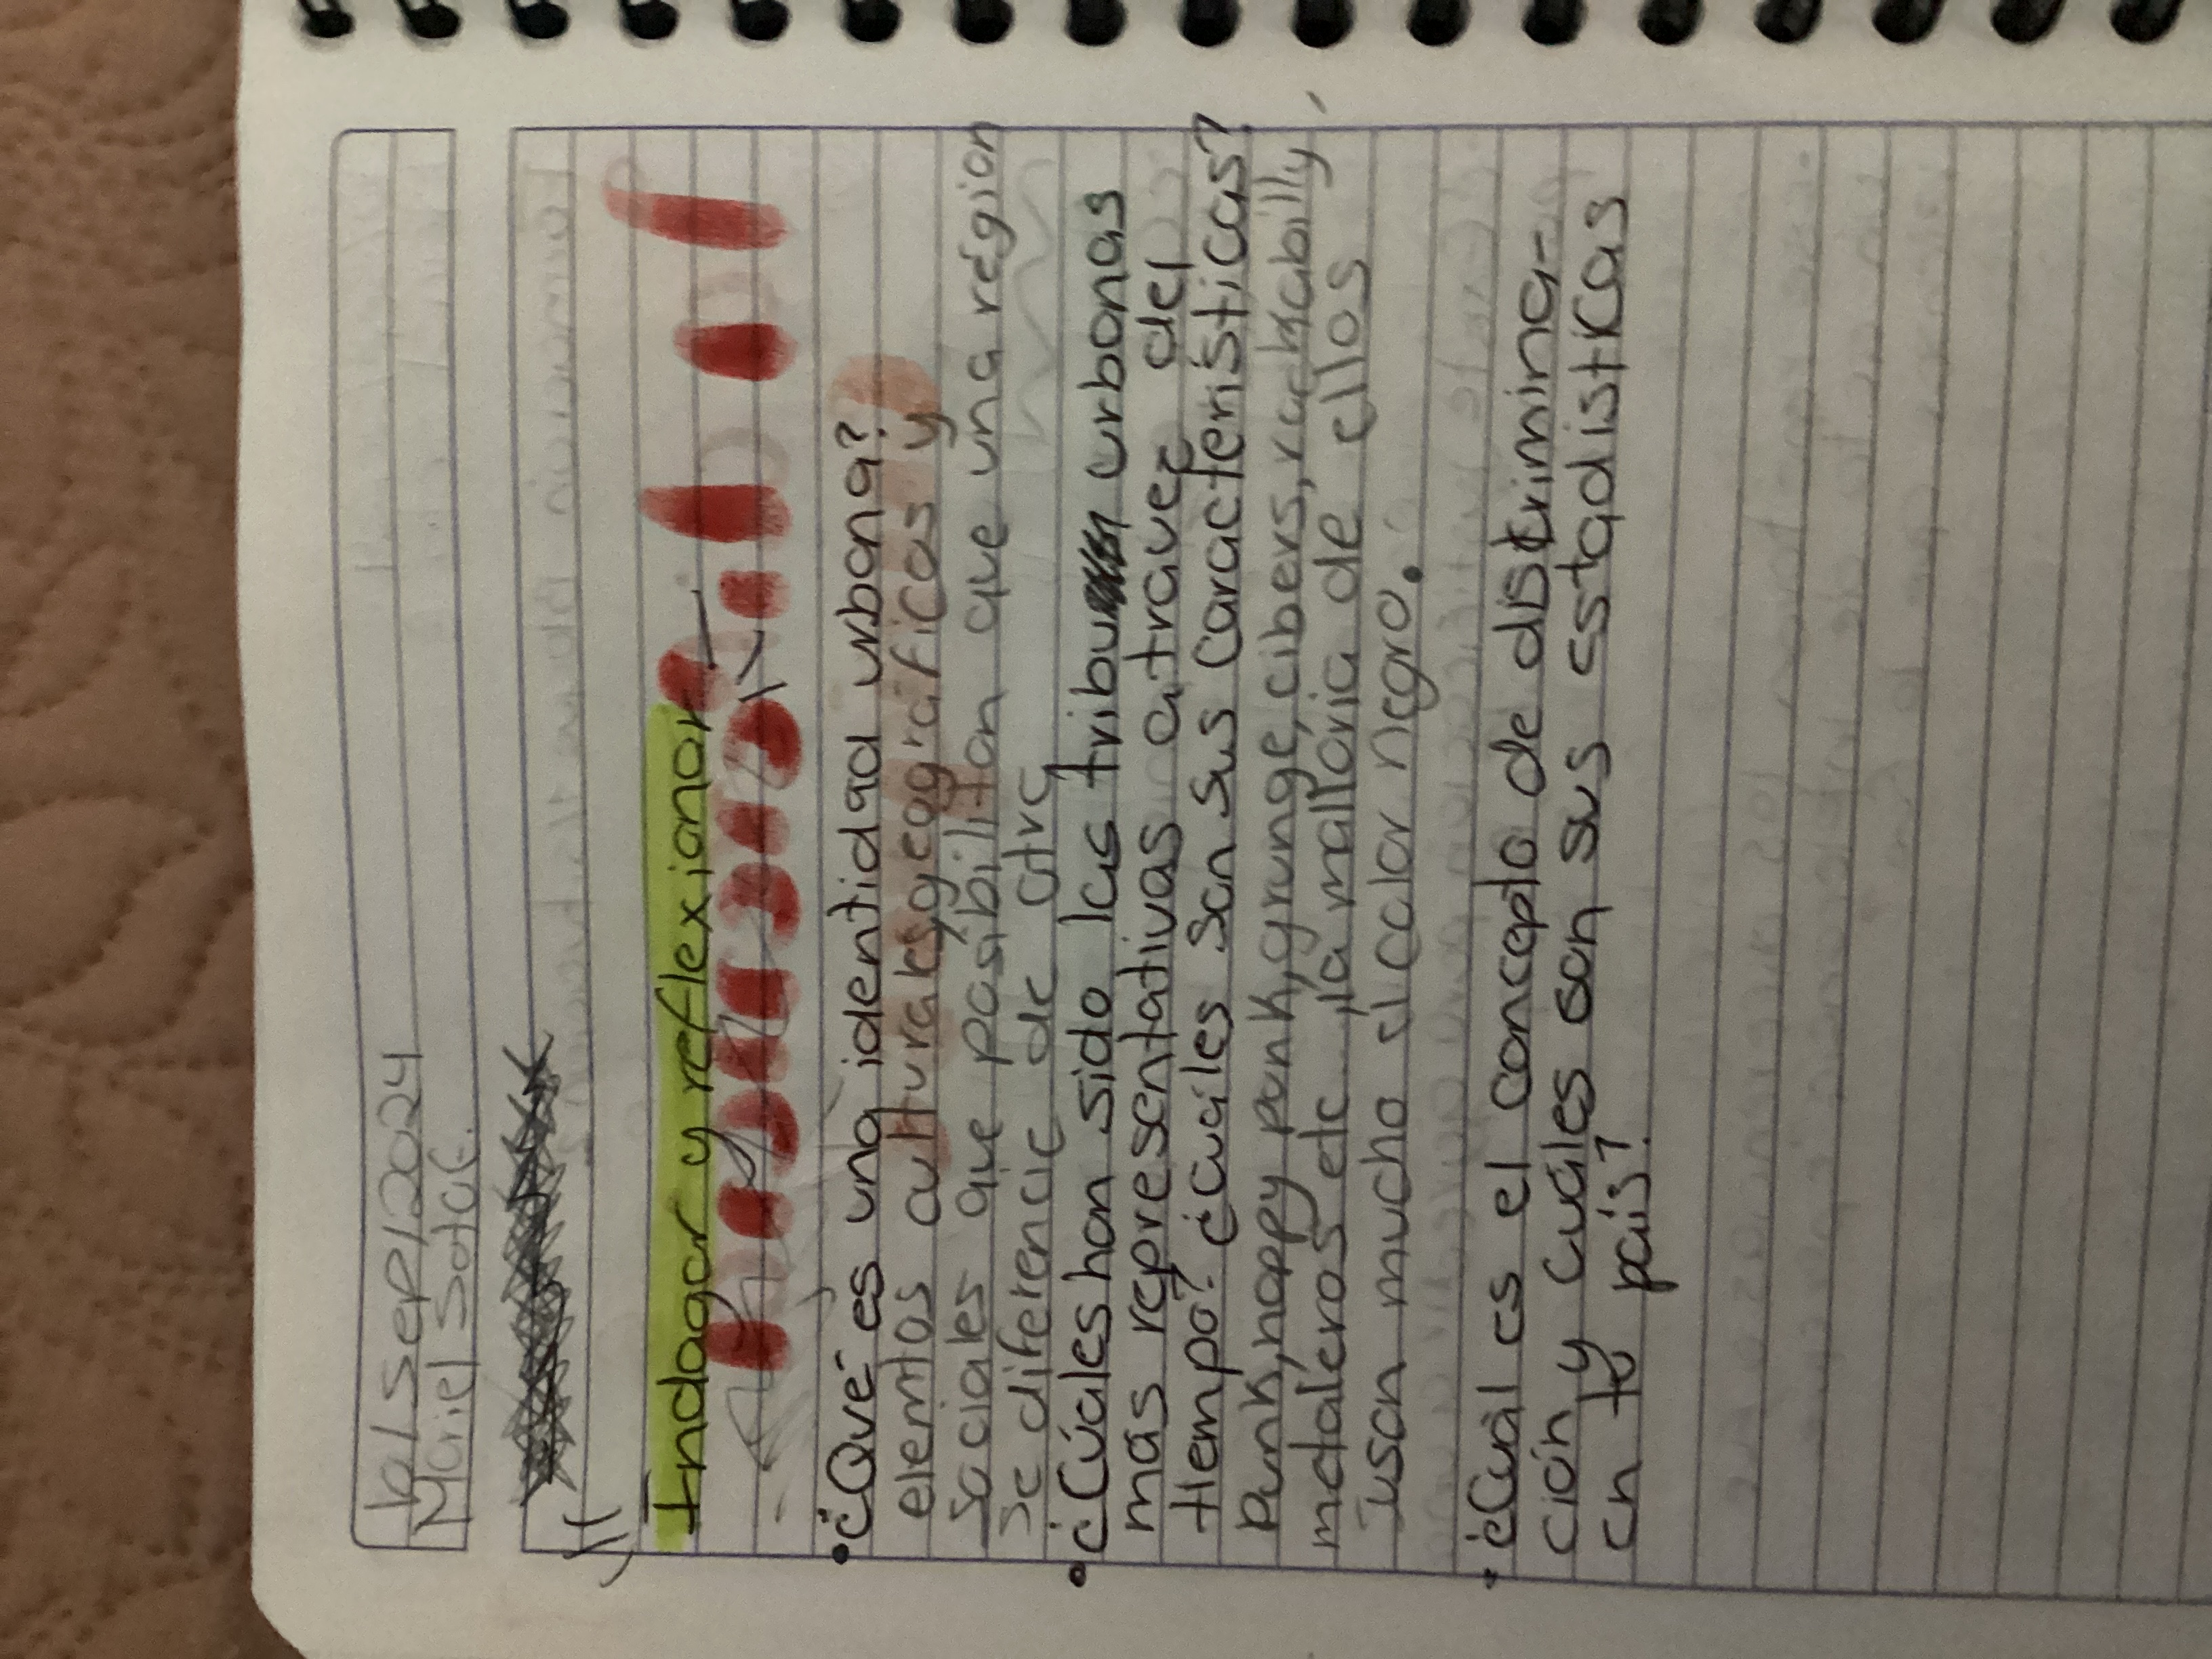 /sep/2024
Mariel Soto G.
Indagar y reflexionar
• ¿Qué es una identidad urbana?
elemtos culturales, geográficos y
sociales que posibilitan que una región
se diferencie de otra
• ¿Cúales han sido las tribu urbanas
más representativas atravez del
tiempo? ¿cuáles son sus características?
Punk, happy punk, grunge, cibers, rockabilly,
metaleros etc, la malloria de ellos
usan mucho el color negro.
• ¿Cuál es el concepto de distrimina-
ción y cuáles son sus estadisticas
en tu país?